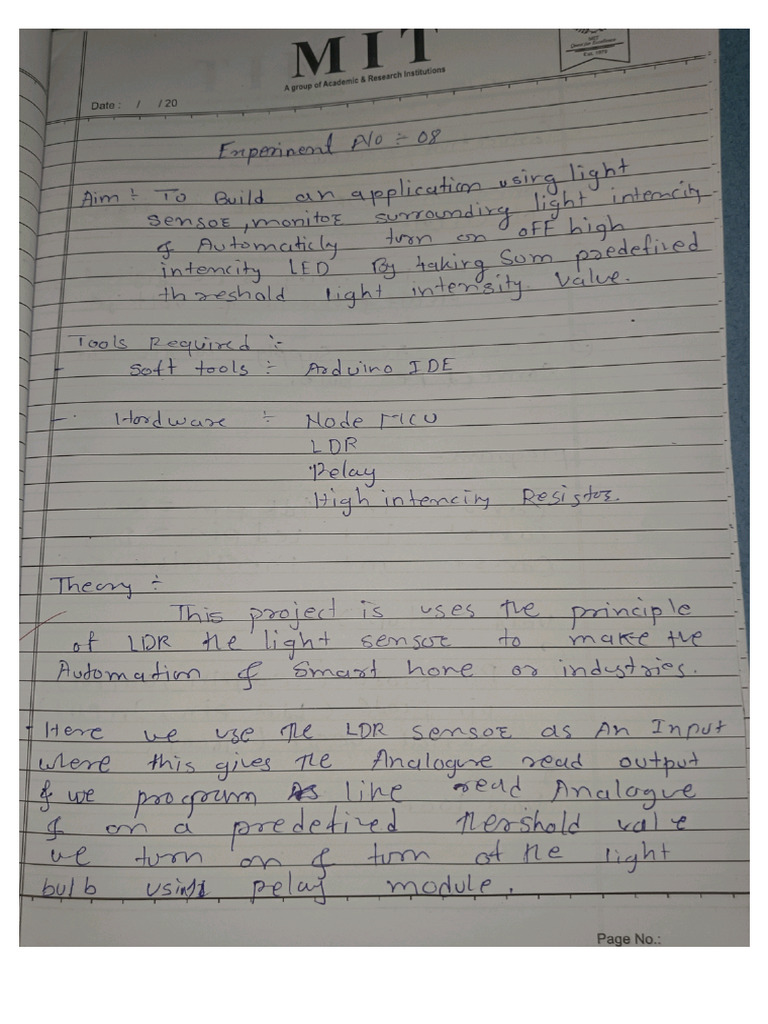 MIT
A group of Academic & Research Institutions
Date : / / 20
Experiment No :- 08
Aim :- To Build an application using light
sensor, monitor surrounding light intencity
& Automaticly turn on off high
intencity LED By taking Sum predefired
threshold light intensity value.
Tools Required :-
Soft tools :- Arduino IDE
Hardware :- Node MCU
LDR
Relay
High intencity Resistor.
Theory :-
This project is uses the principle
of LDR the light sensor to make the
Automation & Smart home or industries.
Here we use the LDR sensor as An Input
where this gives the Analogue read output
& we program As line read Analogue
& on a predefired thershold value
we turn on & turn of the light
bulb using relay module.
Page No.: